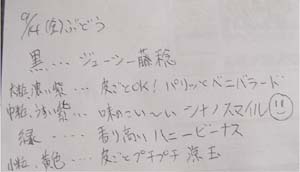 9/14(金)ぶどう
黒‥‥ジューシー藤稔
大粒、濃い紫‥‥皮ごとOK!パリッとベニバラード
中粒、うすい紫‥‥味のこい〜いシナノスマイル
緑‥‥香り高いハニービーナス
小粒、黄色‥‥皮ごとプチプチ涼玉